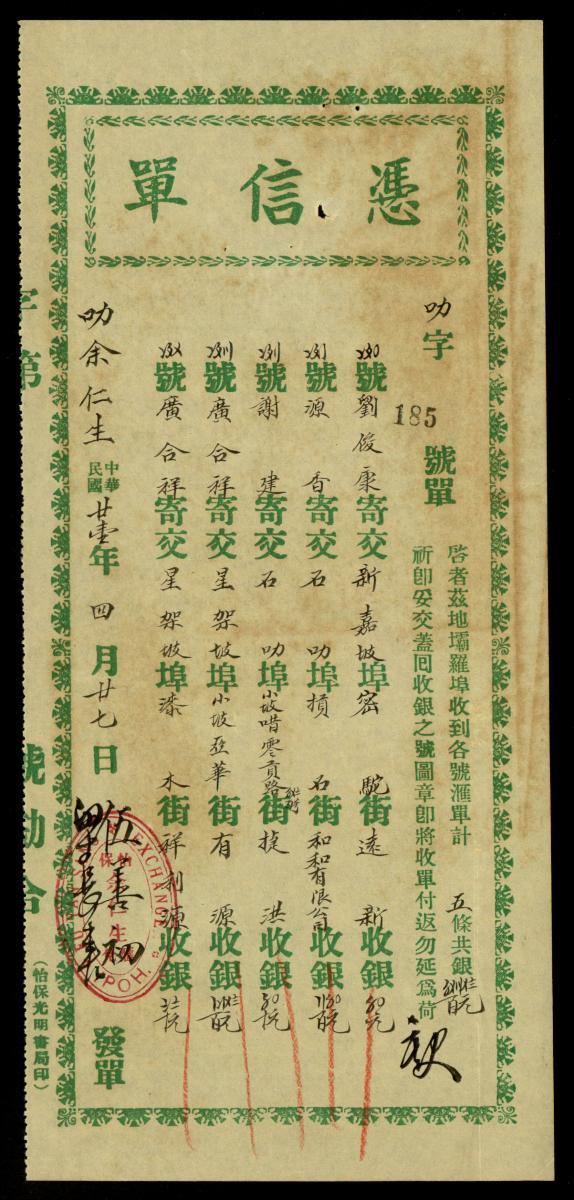 憑信單
叻字 185 號單
啓者茲地壩羅埠收到各號滙單計 五條共銀
祈即妥交蓋回收銀之號圖章即將收單付返勿延爲荷
號劉俊康寄交新嘉坡埠密駝街遠新收銀
號源香寄交石叻埠損石街和和有限公司收銀
號謝建寄交石叻埠小坡唶零貢路街捷洪收銀
號廣合祥寄交星架坡埠小坡亞華街有源收銀
號廣合祥寄交星架坡埠漆木街祥利源收銀
叻余仁生
中華民國廿壹年四月廿七日
伍善初
發單
EXCHANGE
怡保
余仁生
IPOH.
字第
號勘合
(怡保光明書局印)